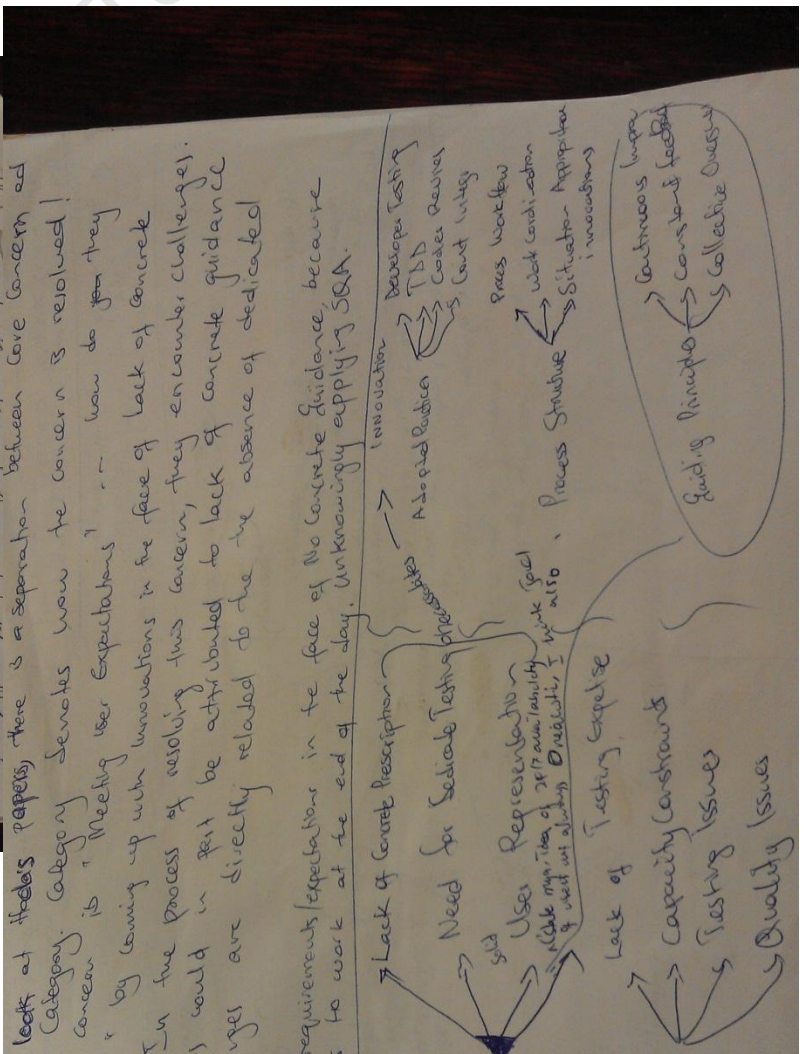 look at Hoda's papers, there is a separation between Core Concern and
Category. Category denotes how the concern is resolved!
Concern is "Meeting User Expectations" -- how do they
" by coming up with innovations in the face of lack of concrete
In the process of resolving this concern, they encounter challenges.
s could in part be attributed to lack of concrete guidance
nges are directly related to the the absence of dedicated
requirements/expectations in the face of No Concrete Guidance, because
s to work at the end of the day. Unknowingly applying SQA.
Lack of Concrete Prescription
Need for Dedicate Testing
User Representation
Solid
of user not always
I think
also
Lack of Testing Expertise
Capacity Constraints
Testing Issues
Quality Issues
INNOVATION
Adopted Practices
Developer Testing
TDD
Codes Reviews
Cont Integ
Process Structure
Process Workflow
Work Coordination
Situation Appropriation
innovations
Guiding Principles
Continuous Improv
Constant feedback
Collective Owersh